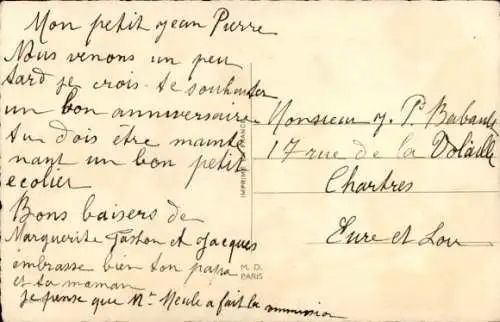 Mon petit Jean Pierre
Nous venons un peu
tard je crois te souhaiter
un bon anniversaire
tu dois être mainte
nant un bon petit
ecolier
Bons baisers de
Marguerite Gaston et Jacques
embrasse bien ton papa
et ta maman
je pense que Mr Meule a fait la commission
IMPRIMÉ EN FRANCE
M. D.
PARIS
Monsieur J. P. Babault
17 rue de la Volaille
Chartres
Eure et Loir